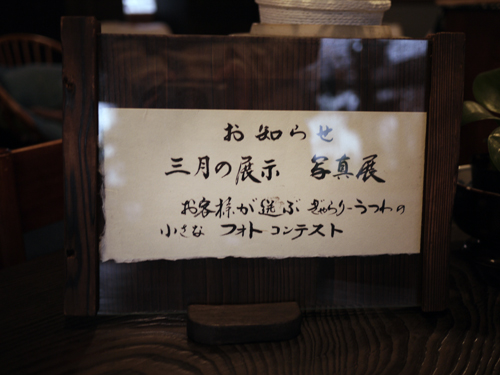 お知らせ
三月の展示 写真展
お客様が選ぶ ぎゃらりーうつわの
小さな フォトコンテスト